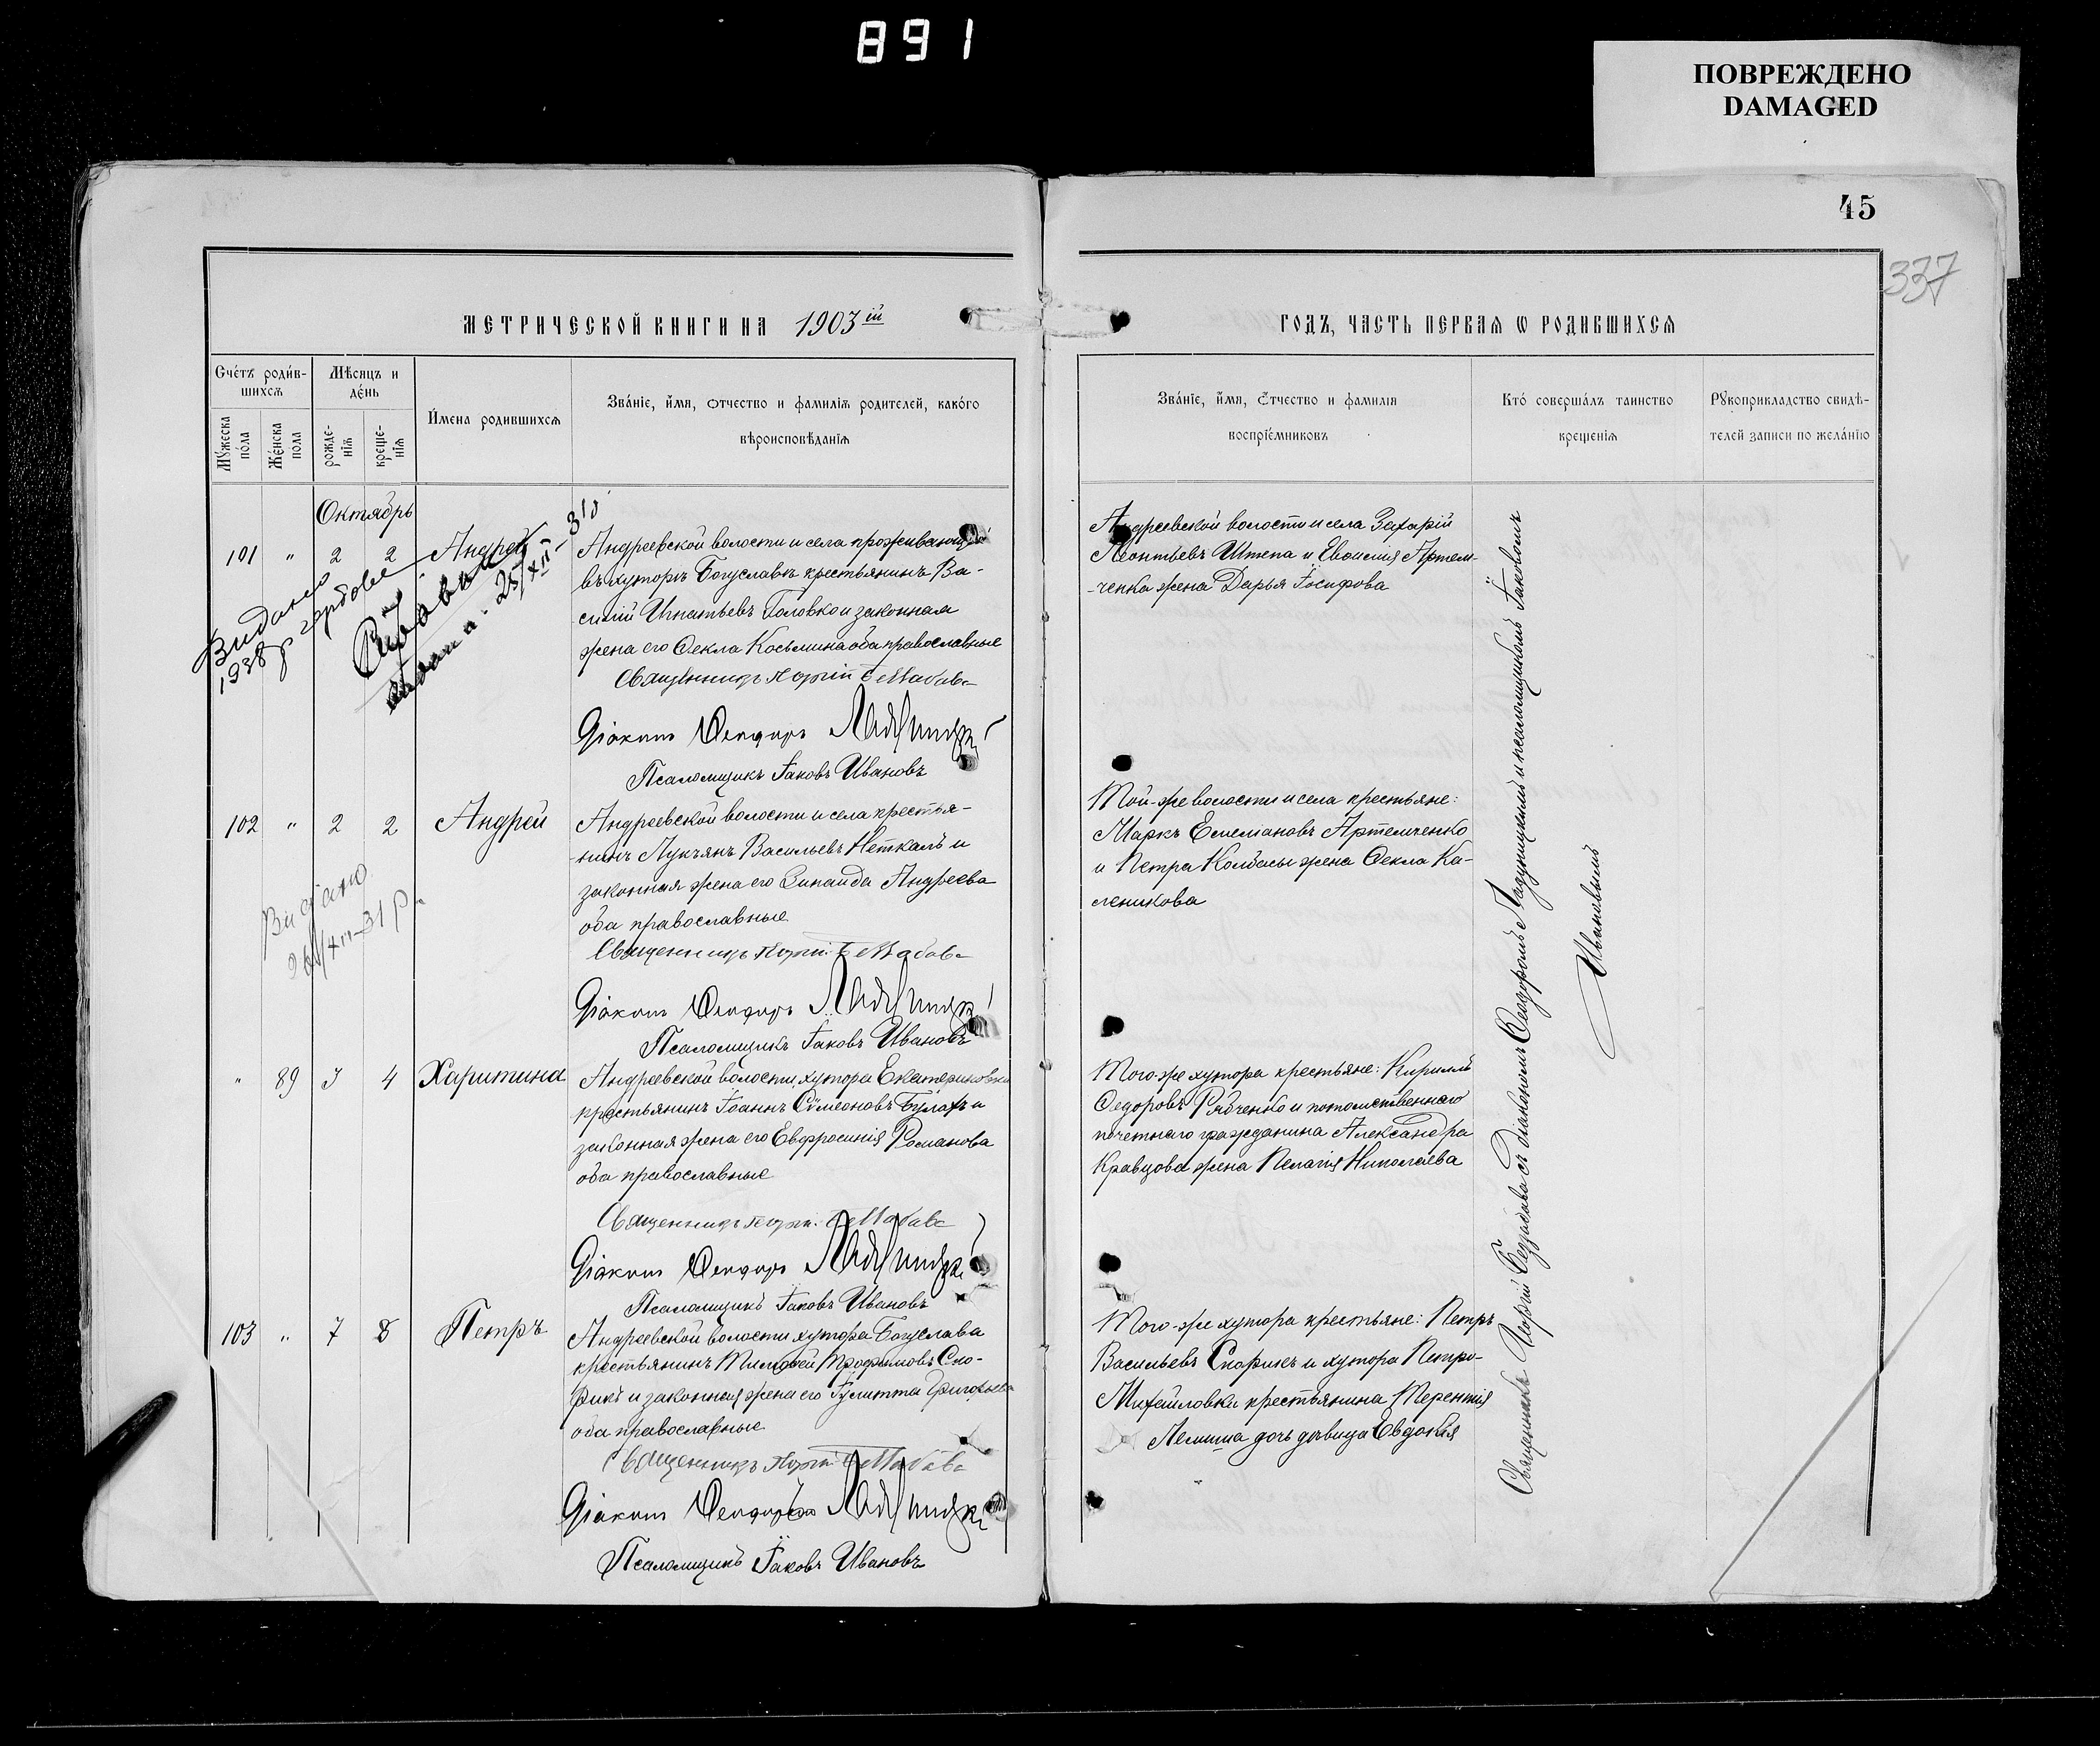 891
ПОВРЕЖДЕНО
DAMAGED
45
337
МЕТРИЧЕСКОЙ КНИГИ НА 1903 ій
ГОДЪ, ЧАСТЬ ПЕРВАЯ Ѡ РОДИВШИХСЯ
Счётъ родив-
шихся
Мужеска пола
Женска пола
Мѣсяцъ и
день
рожде-
нія
креще-
нія
Имена родившихся
Званіе, имя, отчество и фамилія родителей, какого
вѣроисповѣданія
Званіе, имя, отчество и фамилія
воспріемниковъ
Кто совершалъ таинство
крещенія
Рукоприкладство свидѣ-
телей записи по желанію
Октябрь
101 " 2 2 Андрей
Видано
1938р
Андреевской волости и села проживающій
въ хуторѣ Богуславкѣ крестьянинъ Ва-
силій Игнатьевъ Головко и законная
жена его Ѳекла Косьмина оба православные
Священникъ Георгій
Діаконъ Ѳеодоръ
Псаломщикъ Іаковъ Ивановъ
Андреевской волости и села Захарій
Леонтьевъ Штепа и Артем-
ченка жена Дарья Іосифова
102 " 2 2 Андрей
Видано
26/XII-31 р.
Андреевской волости и села крестья-
нинъ Лукъянъ Васильевъ Неткалъ и
законная жена его Зинаида Андреева
оба православные
Священникъ Георгій
Діаконъ Ѳеодоръ
Псаломщикъ Іаковъ Ивановъ
Той-же волости и села крестьяне:
Маркъ Емеліановъ Артемченко
и Петра Колбасы жена Ѳекла Ка-
леникова
" 89 3 4 Харитина
Андреевской волости, хутора Екатериновки
крестьянинъ Іоаннъ Сѵмеоновъ Булахъ и
законная жена его Евфросинія Романова
оба православные
Священникъ Георгій
Діаконъ Ѳеодоръ
Псаломщикъ Іаковъ Ивановъ
Того-же хутора крестьяне: Кириллъ
Ѳедоровъ Рябченко и потомственнаго
почетнаго гражданина Александра
Кравцова жена Пелагія Николаева
103 " 7 8 Петръ
Андреевской волости хутора Богуслава
крестьянинъ Тимоѳей Трофимовъ Ско-
рикъ и законная жена его Іулитта Григорьева
оба православные
Священникъ Георгій
Діаконъ Ѳеодоръ
Псаломщикъ Іаковъ Ивановъ
Того-же хутора крестьяне: Петръ
Васильевъ Скорикъ и хутора Петро-
Михайловки крестьянина Терентія
Лемиша дочь дѣвица Евдокія
Священникъ Георгій съ діакономъ Ѳеодоромъ и псаломщикомъ Іаковомъ
Ивановымъ